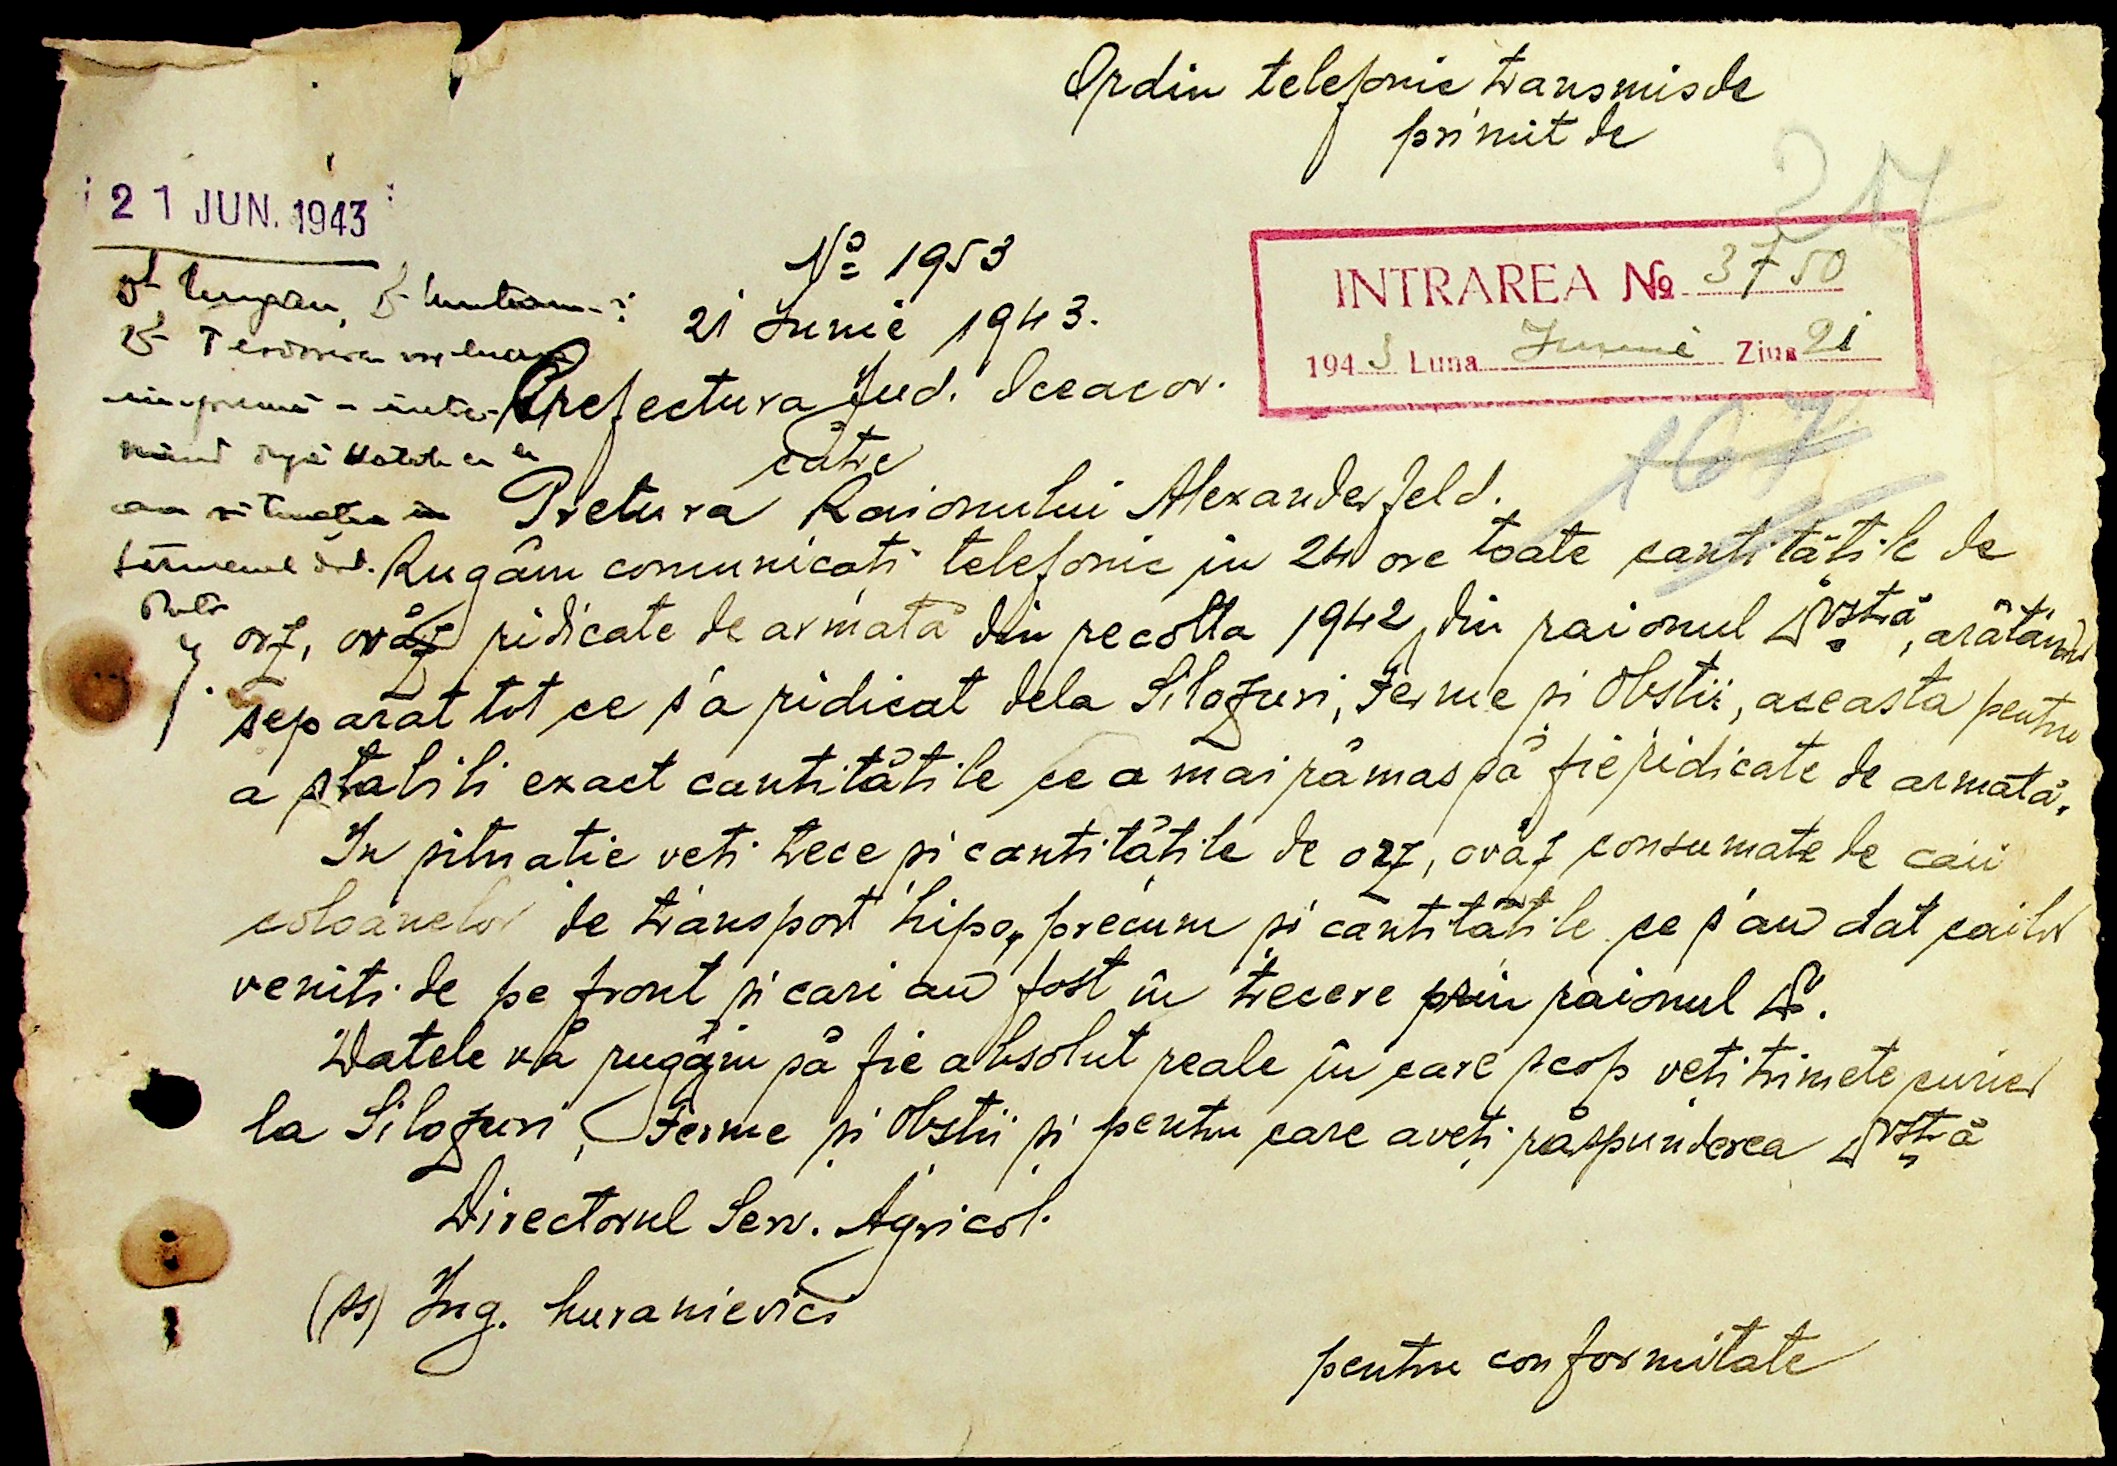 Ordin telefonic transmis de
primit de
217
21 JUN. 1943
INTRAREA № 3750
1943 Luna Junie Ziua 21
№ 1953
21 Junie 1943.
Prefectura Jud. Oceacov.
către
167
Pretura Raionului Alexanderfeld.
Rugăm comunicati telefonic în 24 ore toate cantitătile de
orz, ovăz ridicate de armată din recolta 1942, din raionul Dvstră, arătând
separat tot ce s'a ridicat dela Silozuri, Ferme și Obstii, aceasta pentru
a stabili exact cantitătile ce a mai rămas să fie ridicate de armată.
In situatie veti trece și cantitătile de orz, ovăz consumate de caii
coloanelor de transport hipo, precum și cantitătile ce s'au dat cailor
veniti de pe front și cari au fost în trecere prin raionul D.
Datele vă rugăm să fie absolut reale în care scop veți trimete curier
la Silozuri, Ferme și Obstii și pentru care aveți răspunderea Dvstră
Directorul Serv. Agricol.
(ss) Ing. Muranievici
pentru conformitate